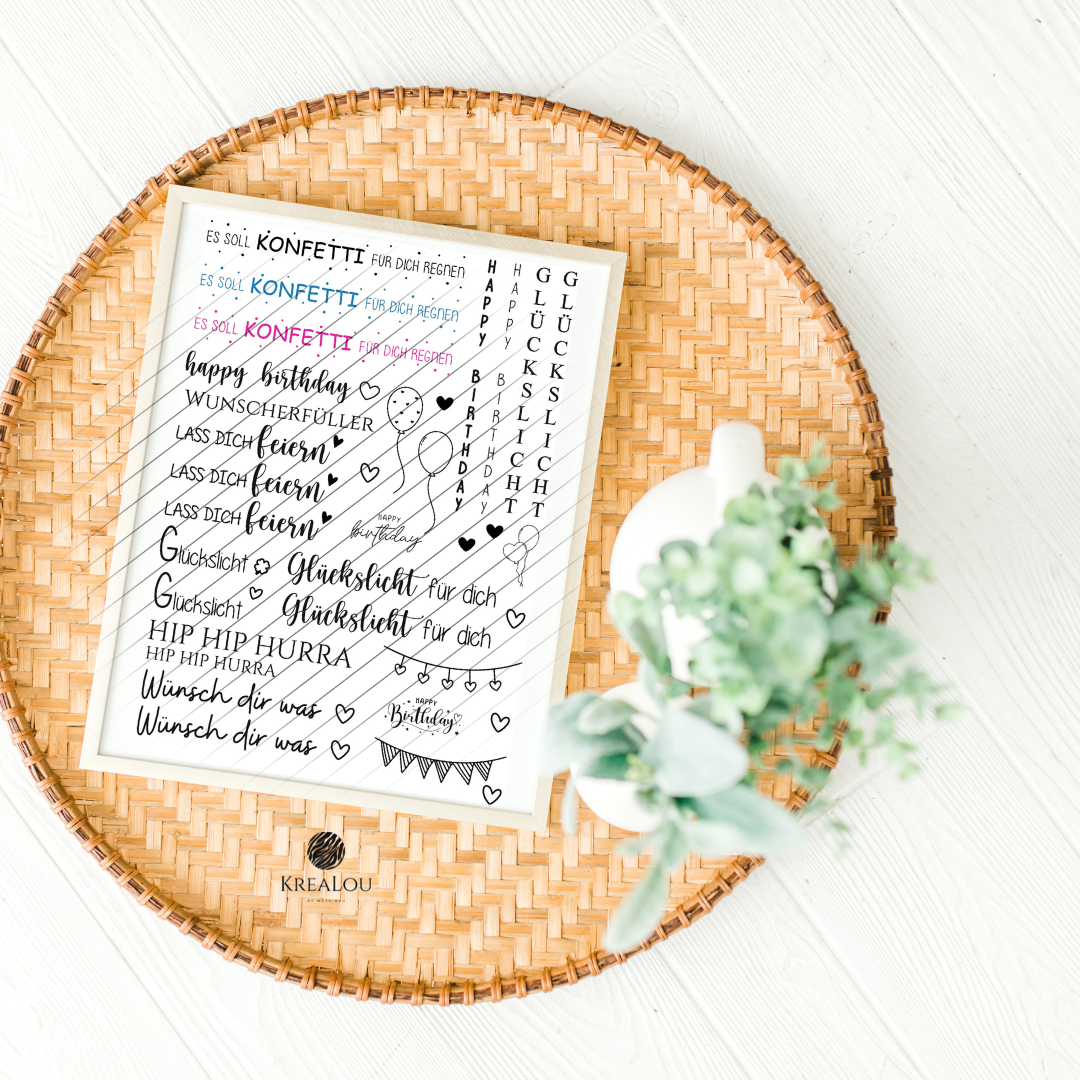 ES SOLL KONFETTI FÜR DICH REGNEN
ES SOLL KONFETTI FÜR DICH REGNEN
ES SOLL KONFETTI FÜR DICH REGNEN
happy birthday
WUNSCHERFÜLLER
LASS DICH feiern
LASS DICH feiern
LASS DICH feiern
HAPPY
birthday
Glückslicht
Glückslicht für dich
Glückslicht
Glückslicht für dich
HIP HIP HURRA
HIP HIP HURRA
Wünsch dir was
Wünsch dir was
HAPPY
Birthday
HAPPY BIRTHDAY
HAPPY BIRTHDAY
GLÜCKSLICHT
GLÜCKSLICHT
KREALOU